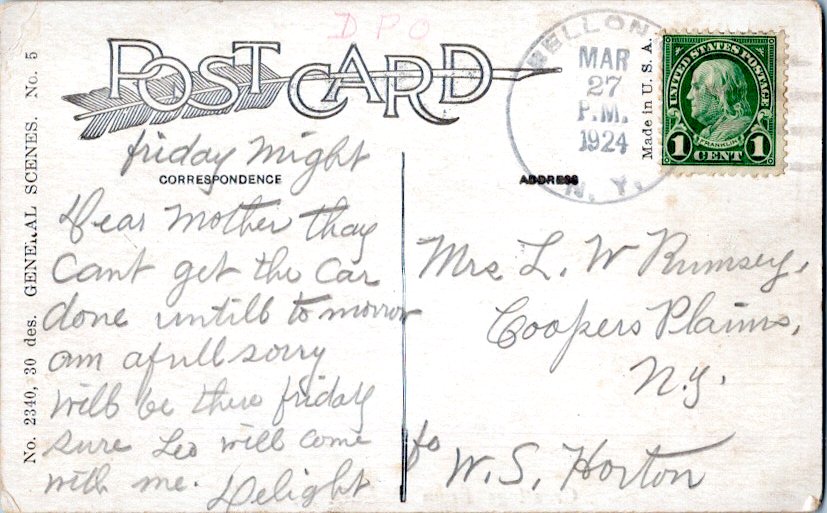 DPO
POST CARD
friday night
CORRESPONDENCE
Dear Mother thay
Cant get the Car
done untill to morrow
am afull sorry
will be there friday
sure Leo will come
with me. Delight
ADDRESS
Mrs L. W Rumsey,
Coopers Plains,
N.Y.
c/o W. S. Horton
BELLONA
MAR
27
P.M.
1924
N. Y.
Made in U. S. A.
UNITED STATES POSTAGE
FRANKLIN
1 CENT 1
No. 2340, 30 des. GENERAL SCENES. No. 5